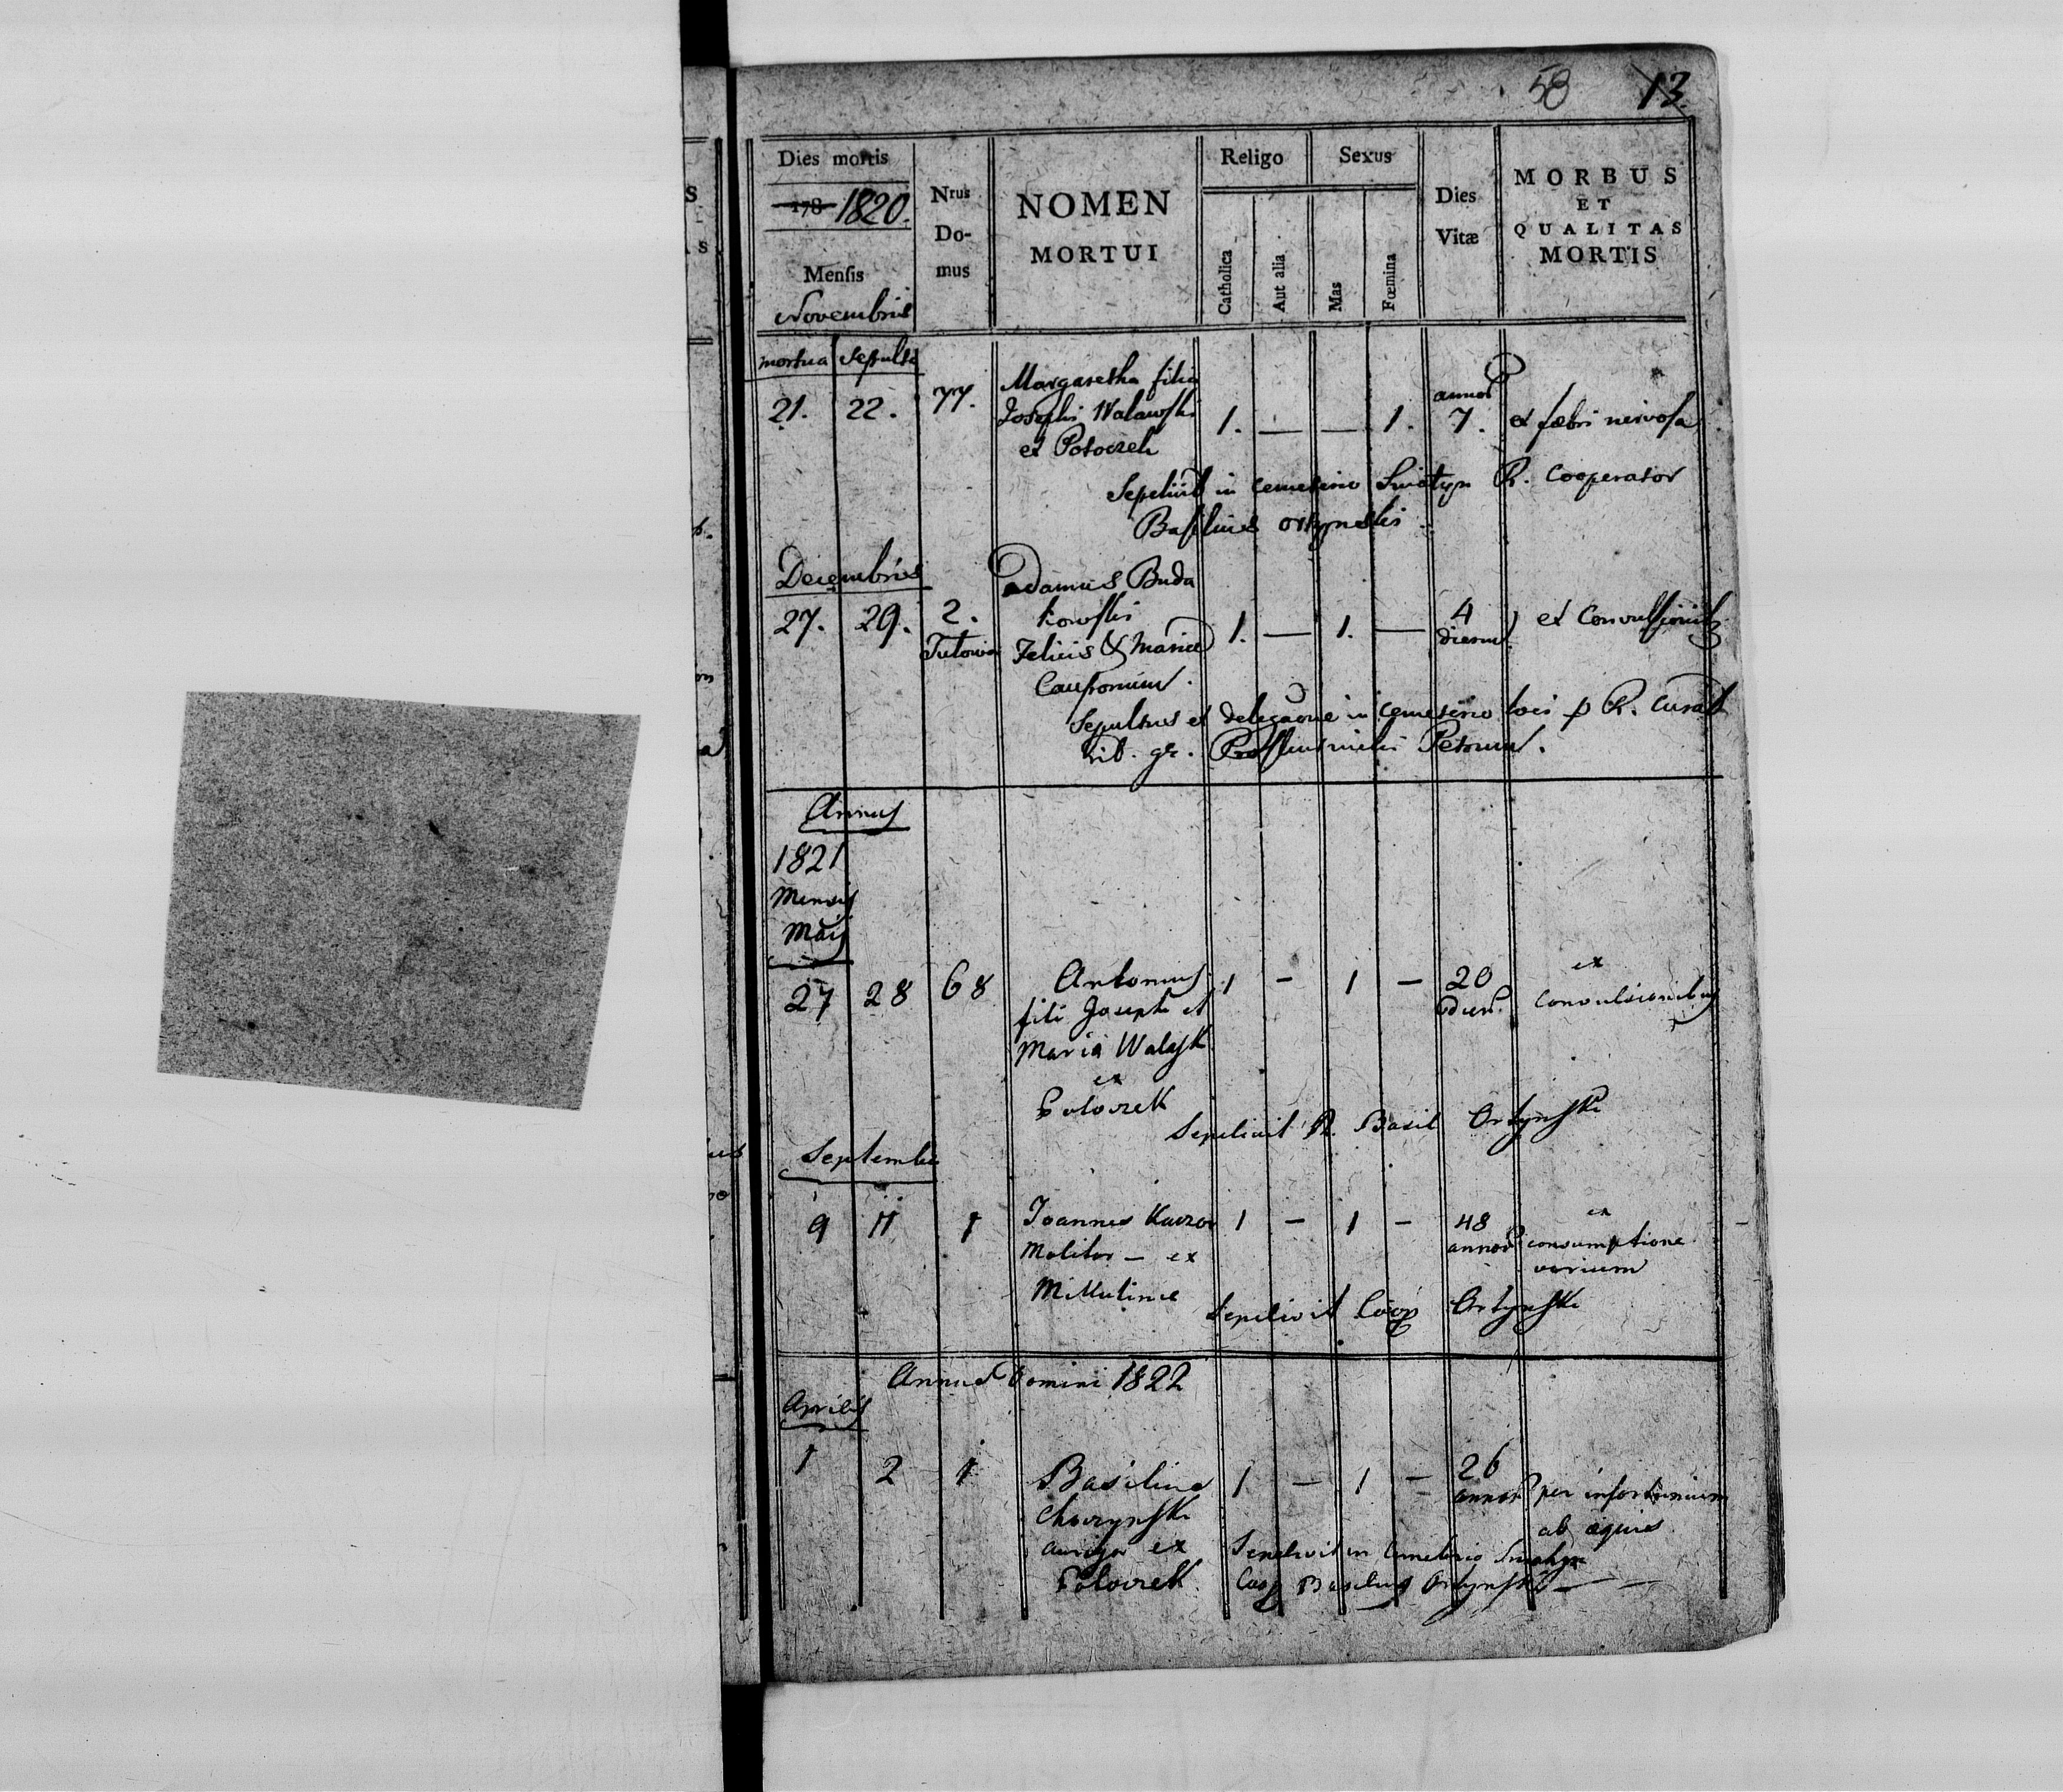 58 13
Dies mortis
178 1820.
Mensis
Novembris
Nrus
Do-
mus
NOMEN
MORTUI
Religo
Catholica
Aut alia
Sexus
Mas
Fœmina
Dies
Vitæ
MORBUS
ET
QUALITAS
MORTIS
mortua sepulta
21. 22. 77. Margaretha filia
Josephi Walawski
ex Potoczek
1. — — 1. annor 7. ex febri nervosa
Sepelivit in cemeterio Sniatyn R. Cooperator
Basilius Ortynski
Decembris
27. 29. 2.
Tutowa
Adamus Buda
kowski
Felicis & Maria
Cauponum.
1. — 1. — 4
dierum ex Convulsionib
Sepultus ex delegaone in cemeterio loci p R. Curat
rit. gr. Petrum.
Annus
1821
Mensis
Maij
27 28 68 Antonius
fili Joseph et
Maria Walask
ex
Potoczek
1 - 1 - 20
dier. ex
Convulsionibus
Sepelivit R. Basil Ortynski
Septembr
9 11 1 Joannes Kaczor
Molitor — ex
Mikulince
1 - 1 - 48
annor ex
consumptione
Sepelivit Coop Ortynski
Annus Domini 1822
Aprilis
1 2 1 Basilius
Chorzynski
auriga ex
Potoczek
1 — 1 — 26
annor per infortunium
ab equis
Sepelivit in Cemeterio Sniatyn
Coop Basilius Ortynski — —